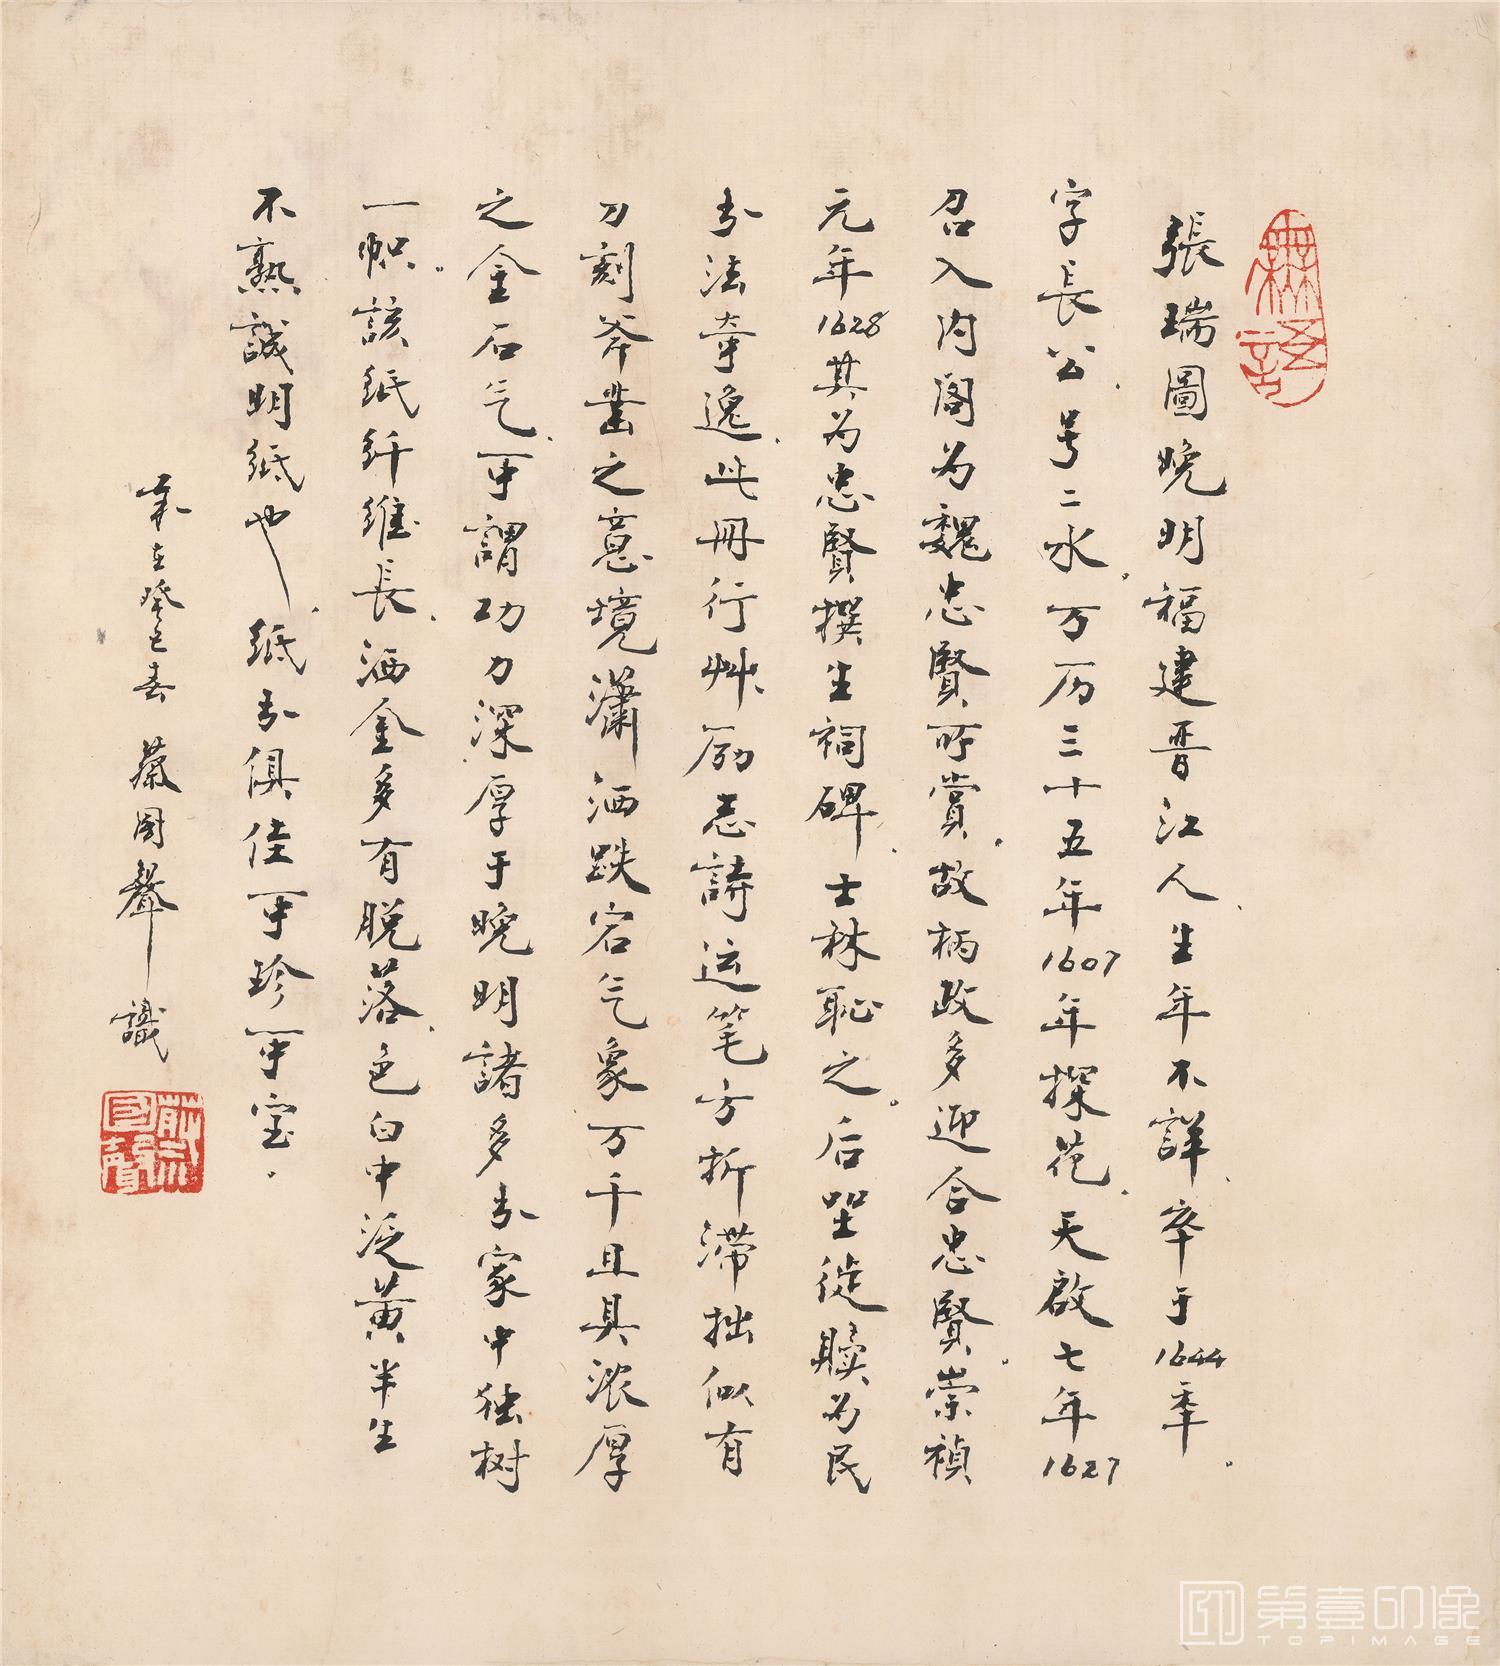 張瑞圖晚明福建晋江人生年不詳卒于1644年。
字長公号二水。万历三十五年1607年探花天啟七年1627
召入内阁为魏忠賢所賞故柄政多迎合忠賢。崇禎
元年1628其为忠賢撰生祠碑士林恥之。后坐徒贖为民
书法奇逸此冊行艸励志詩运笔方折滞拙似有
刀刻斧凿之意境瀟洒跌宕气象万千且具浓厚
之金石气可謂功力深厚于晚明諸多书家中独树
一帜。該纸纤维長洒金多有脱落色白中泛黄半生
不熟誠明纸也纸书俱佳可珍可宝。
歲在癸巳春 蔡國聲識
無語
蔡國聲
第壹印像
TOPIMAGE